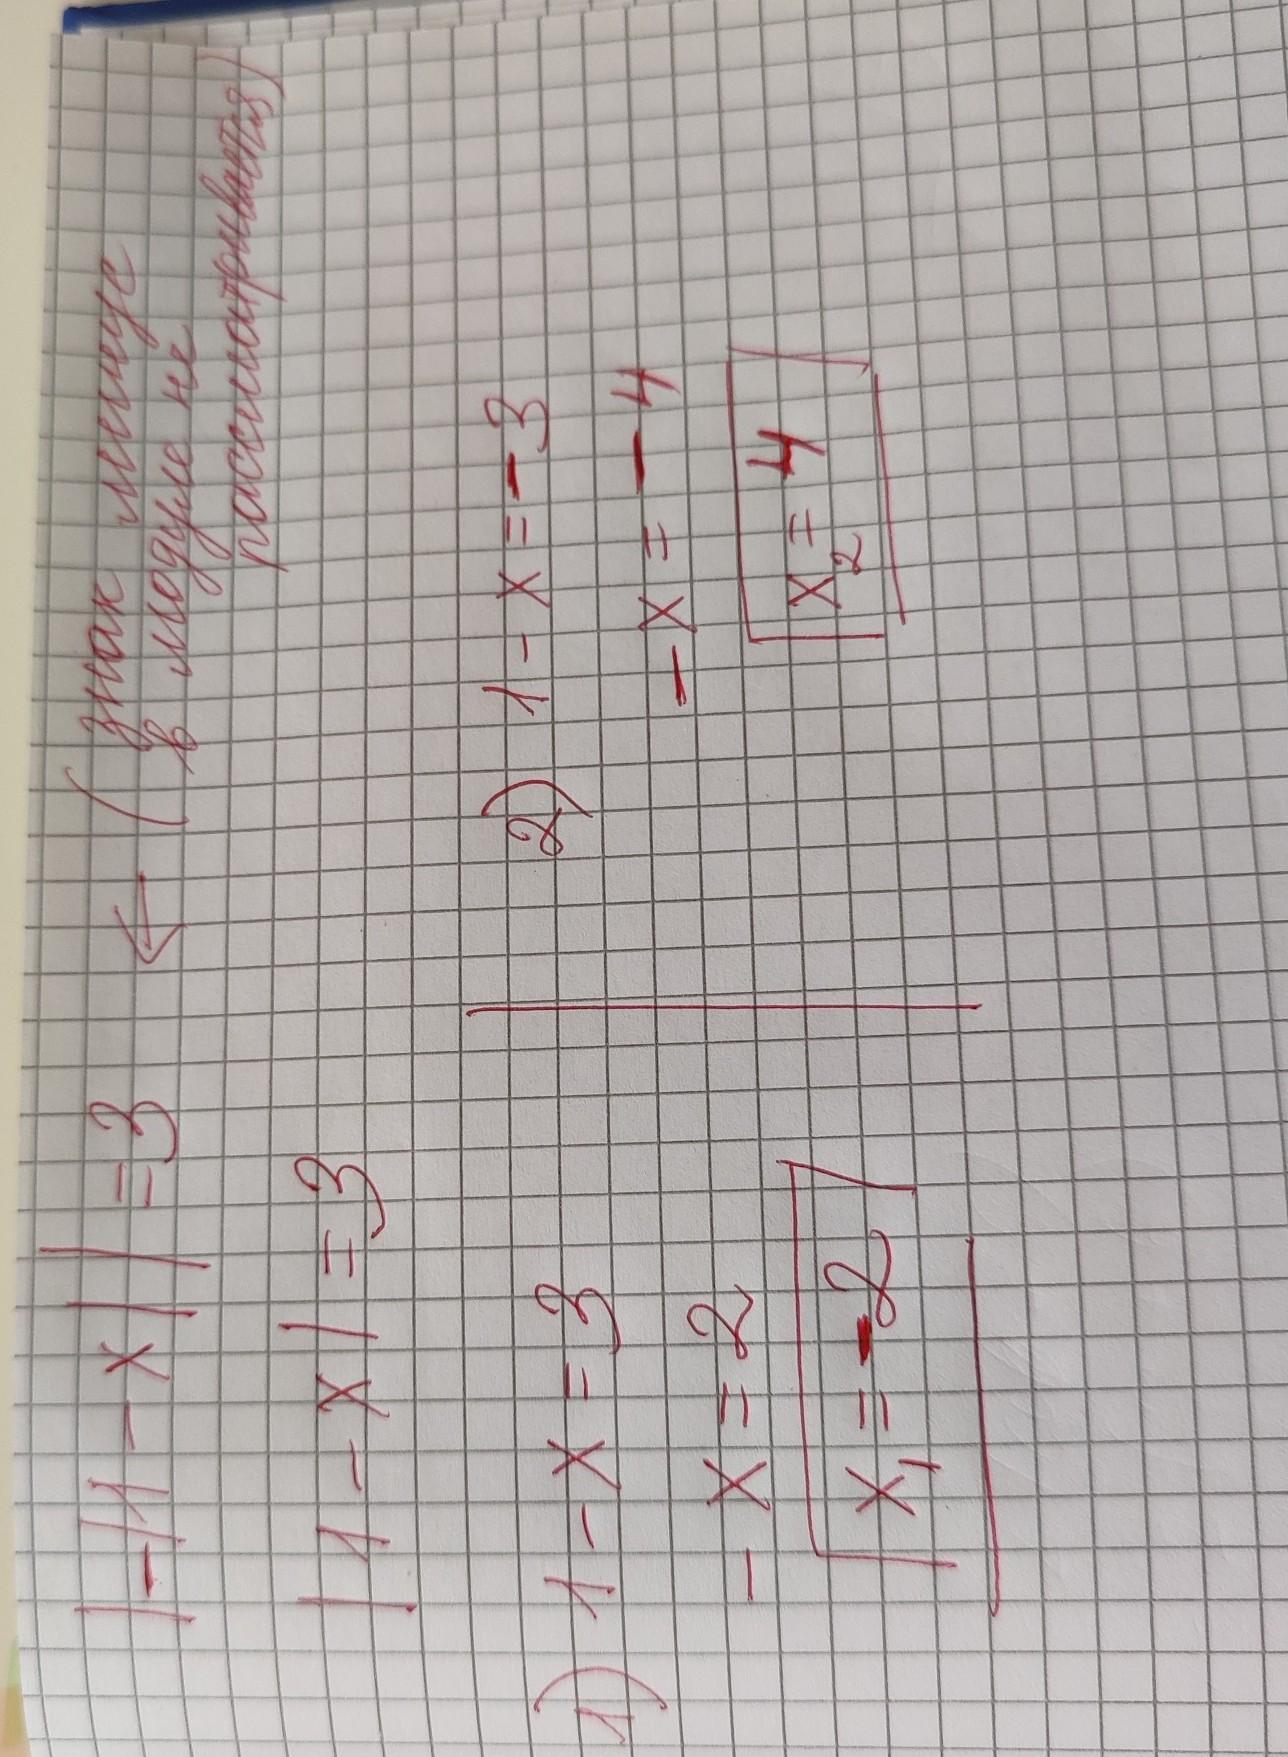 |-|1-x||=3 ← (знак минус
в модуле не
рассматривается)
|1-x|=3
1) 1-x=3
-x=2
x₁=-2
2) 1-x=-3
-x=-4
x₂=4